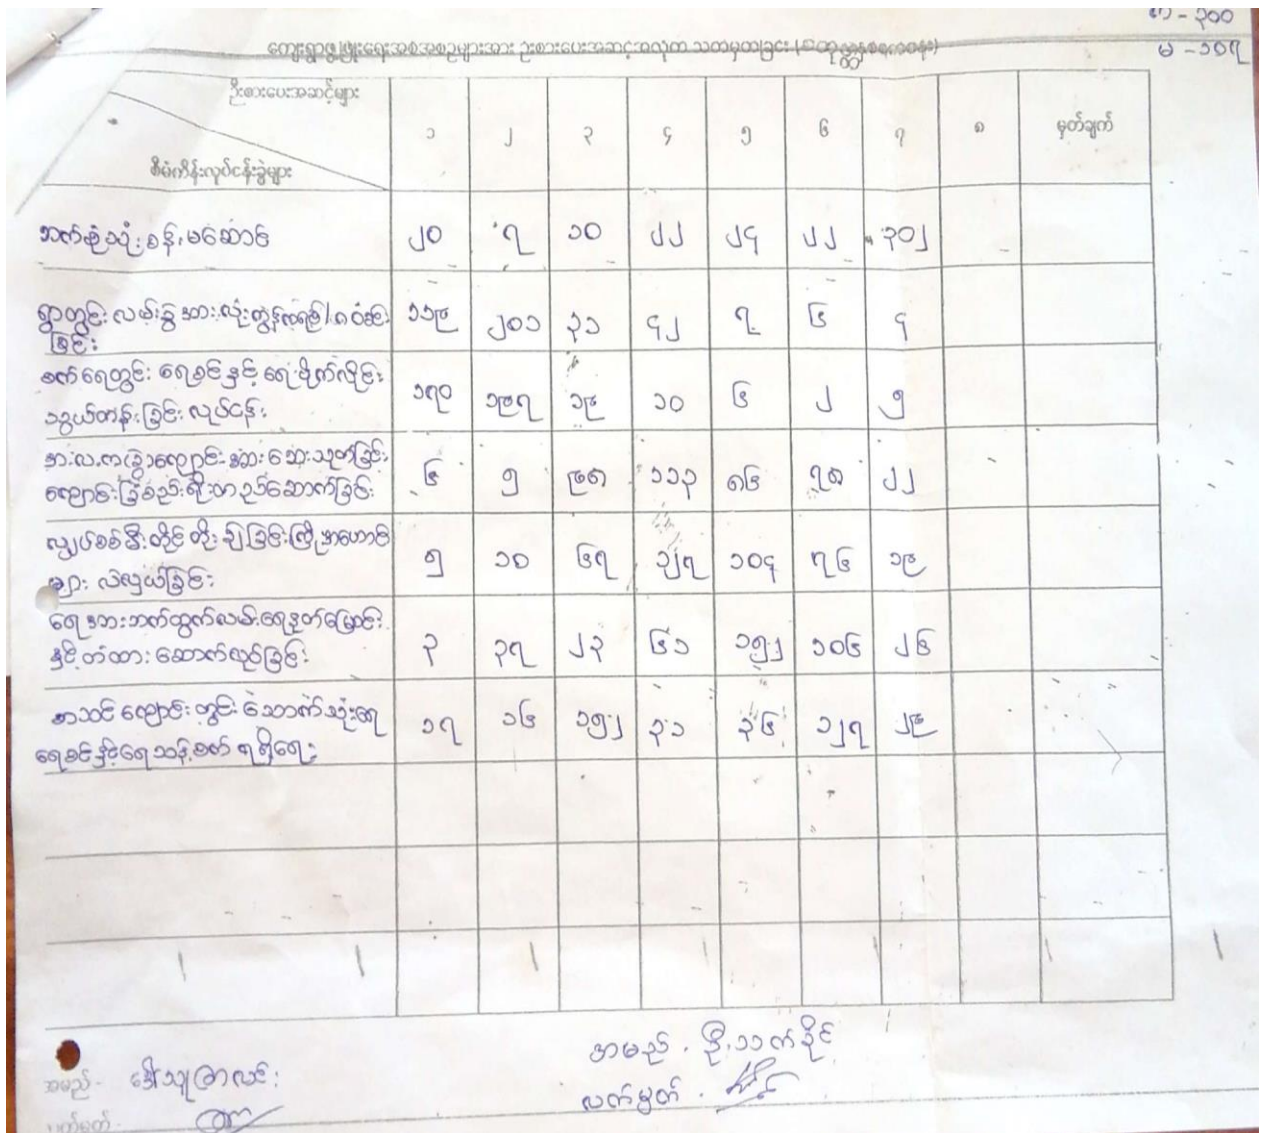 ကျား - ၃၀၀
မ - ၁၀၇
ကျေးရွာဖွံ့ဖြိုးရေးအစီအစဉ်များအား ဦးစားပေးအဆင့်အလိုက် သတ်မှတ်ခြင်း
ဦးစားပေးအဆင့်များ
စီမံကိန်းလုပ်ငန်းခွဲများ
၁ ၂ ၃ ၄ ၅ ၆ ၇ ၈ မှတ်ချက်
ဘက်စုံသုံး ခန်းမဆောင်
၂၀ ၇ ၁၀ ၂၂ ၂၄ ၂၂ ၃၀၂
ရွာတွင်း လမ်း၌ အားလုံးကွန်ကရစ်
ခြင်း
၁၁၉ ၂၀၁ ၃၁ ၄၂ ၇ ၆ ၄
စက်ရေတွင်း ရေစင်နှင့် ရေပိုက်လိုင်း
သွယ်တန်းခြင်း လုပ်ငန်း
၁၇၀ ၁၉၇ ၁၉ ၁၀ ၆ ၂ ၅
အ.လ.က(ခွဲ)ကျောင်း ဆေးသုတ်ခြင်း
ကျောင်းခြံစည်းရိုး တည်ဆောက်ခြင်း
၆ ၅ ၉၈ ၁၁၃ ၈၆ ၇၈ ၂၂
လျှပ်စစ်မီးတိုင် တိုးချဲ့ခြင်း ကြိုးအဟောင်း
များ လဲလှယ်ခြင်း
၅ ၁၀ ၆၇ ၃၂၇ ၁၀၄ ၇၆ ၁၉
ရေဘေးဘက်ထွက်လမ်း ရေနုတ်မြောင်း
နှင့် တံတား ဆောက်လုပ်ခြင်း
၃ ၃၇ ၂၃ ၆၁ ၁၅၂ ၁၀၆ ၂၆
စာသင်ကျောင်းတွင်း သောက်သုံးရေ
ရေစင်နှင့်ရေသန့်စက် ရရှိရေး
၁၇ ၁၆ ၁၅၂ ၃၁ ၃၆ ၁၂၇ ၂၉
အမည် - ဒေါ်သူဇာလင်း
အမည် - ဦးသက်ခိုင်
လက်မှတ် -
လက်မှတ် -